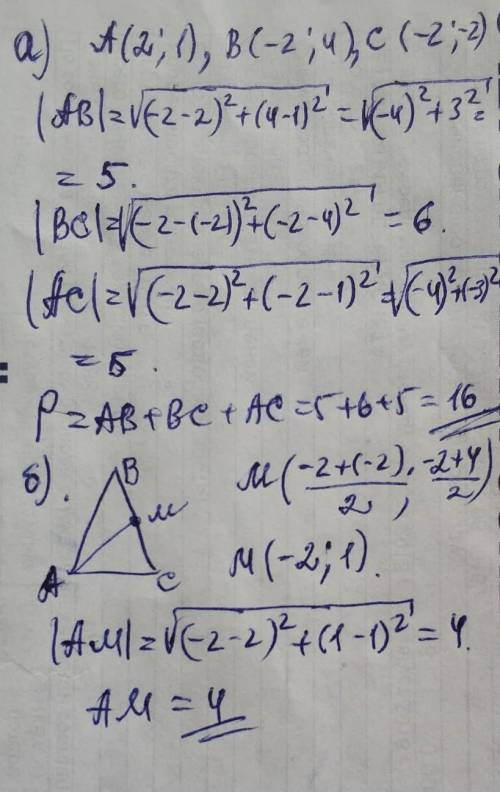 а) A(2;1), B(-2;4), C(-2;-2)
|AB|=√(-2-2)²+(4-1)²=√(-4)²+3²=
=5.
|BC|=√(-2-(-2))²+(-2-4)²=6.
|AC|=√(-2-2)²+(-2-1)²=√(-4)²+(-3)²
=5.
P=AB+BC+AC=5+6+5=16
б).
B
M
A
C
M(-2+(-2)/2; -2+4/2)
M(-2;1).
|AM|=√(-2-2)²+(1-1)²=4.
AM=4